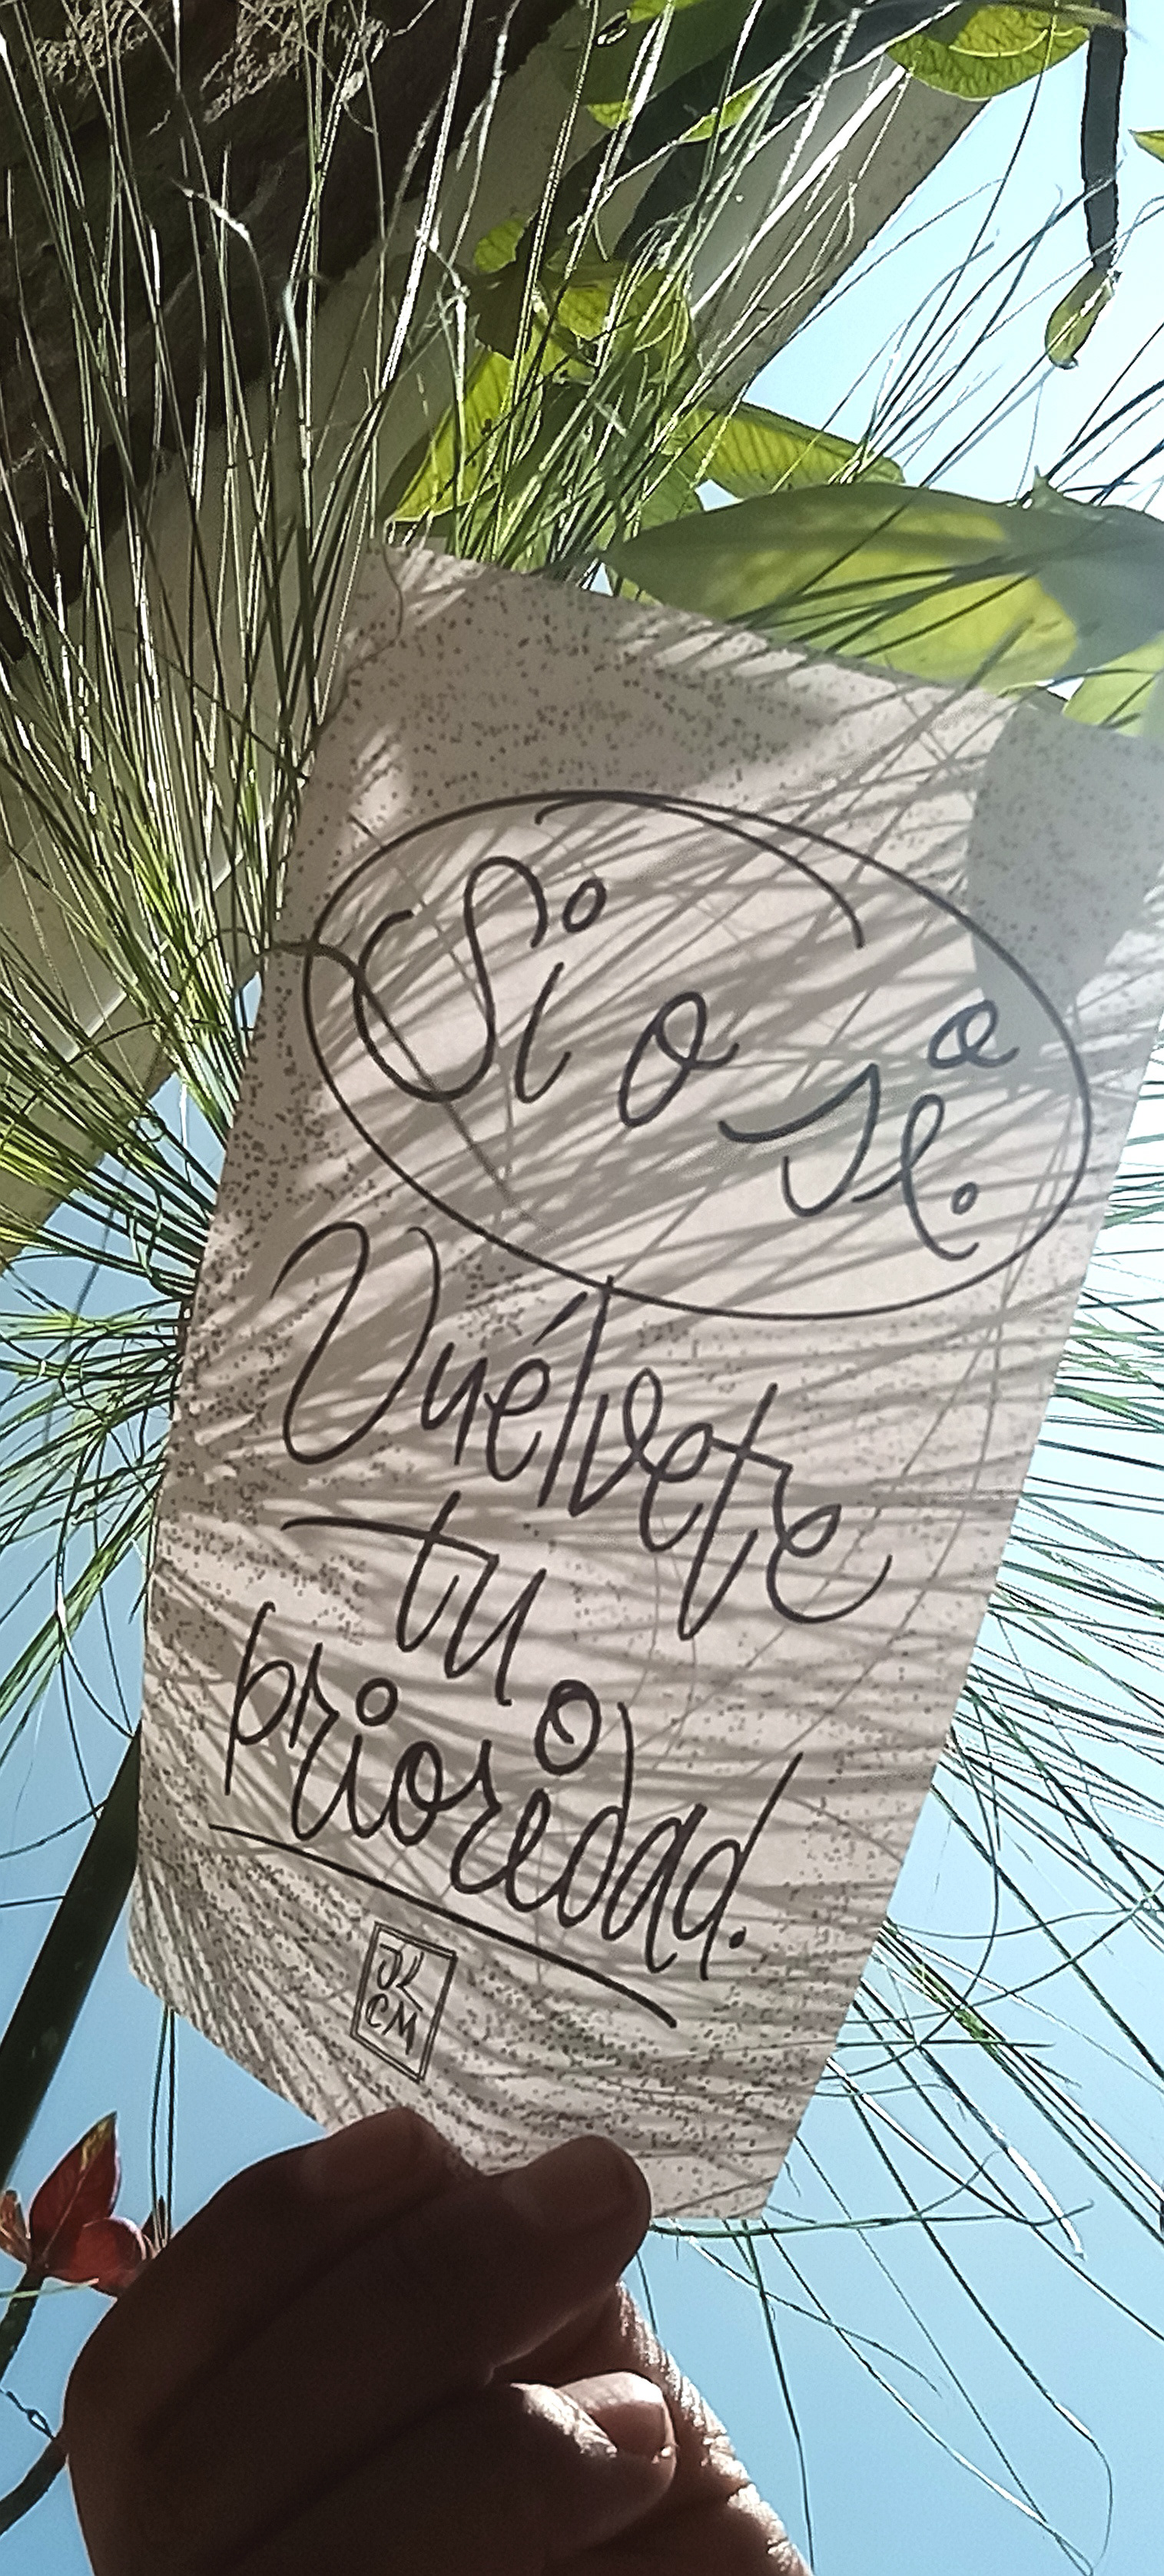 Si o si.
Vuélvete
tu
prioridad.
CM